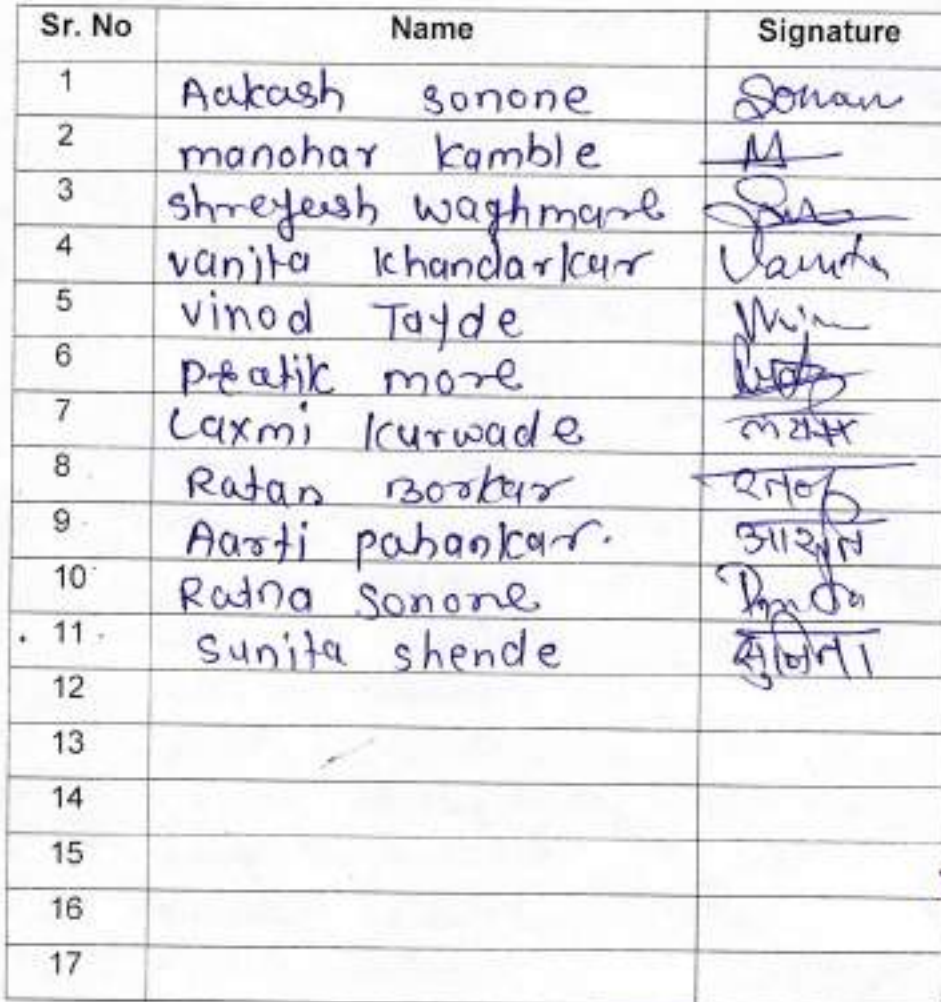 Sr. No Name Signature
1 Aakash sonone Sonan
2 manohar kamble M
3 shreyash waghmare
4 vanita khandarkar Vanita
5 vinod Tayde
6 Pratik more
7 Laxmi kurwade
8 Ratan Borkar रतन
9 Aarti pahankar. आरती
10 Ratna sonone
11 Sunita shende सुनिता
12
13
14
15
16
17